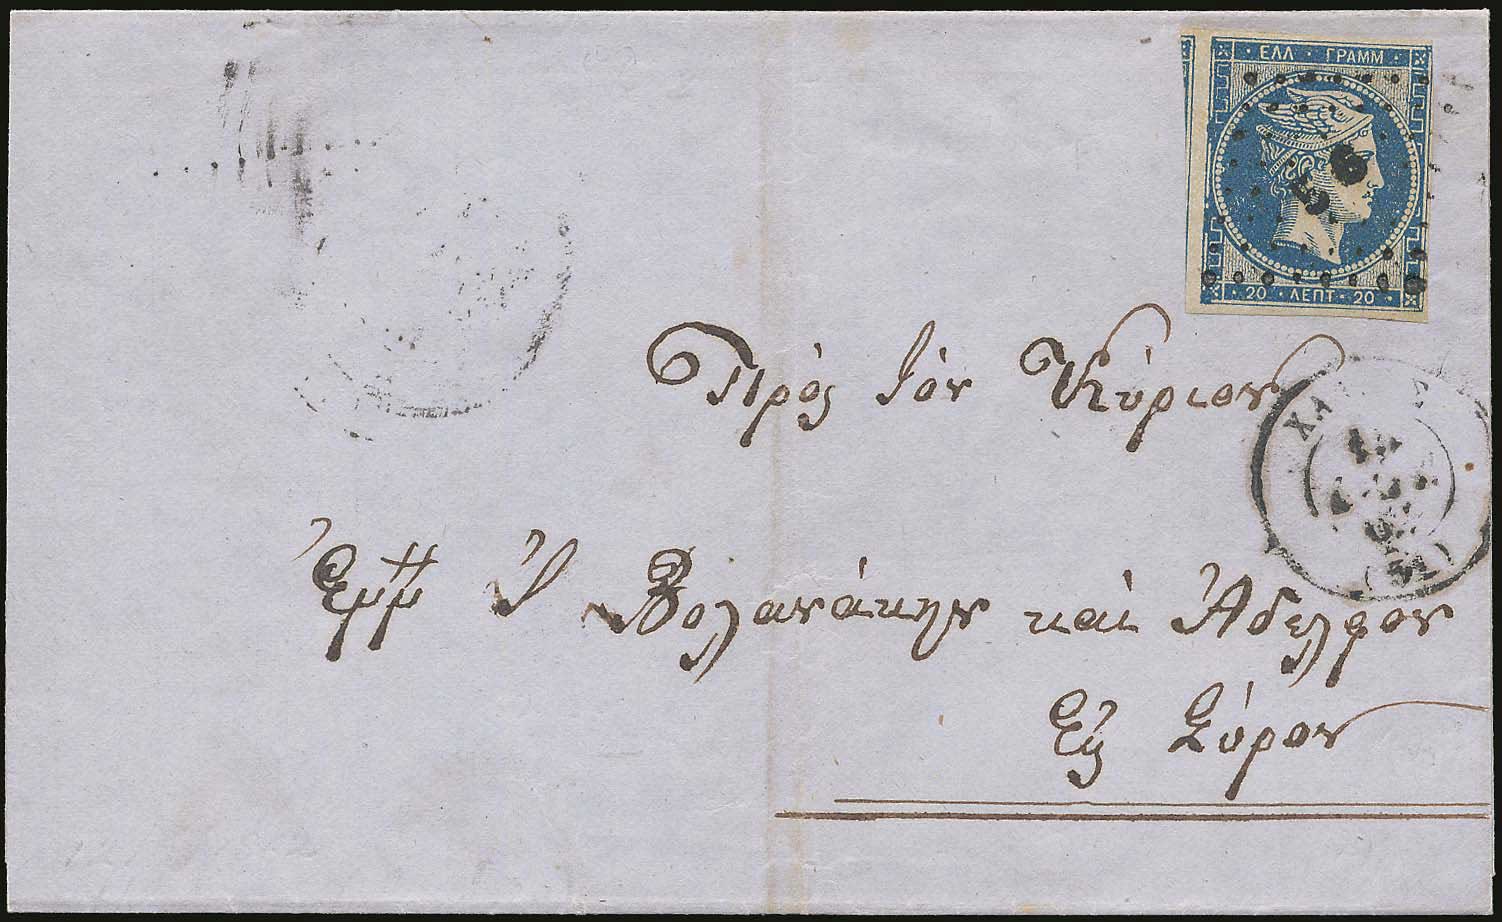 ΕΛΛ · ΓΡΑΜΜ
56
20 · ΛΕΠΤ · 20
Πρὸς τὸν Κύριον
Ἐμμ Ι Βολανάκην καὶ Ἀδελφον
Εἰς Σύρον